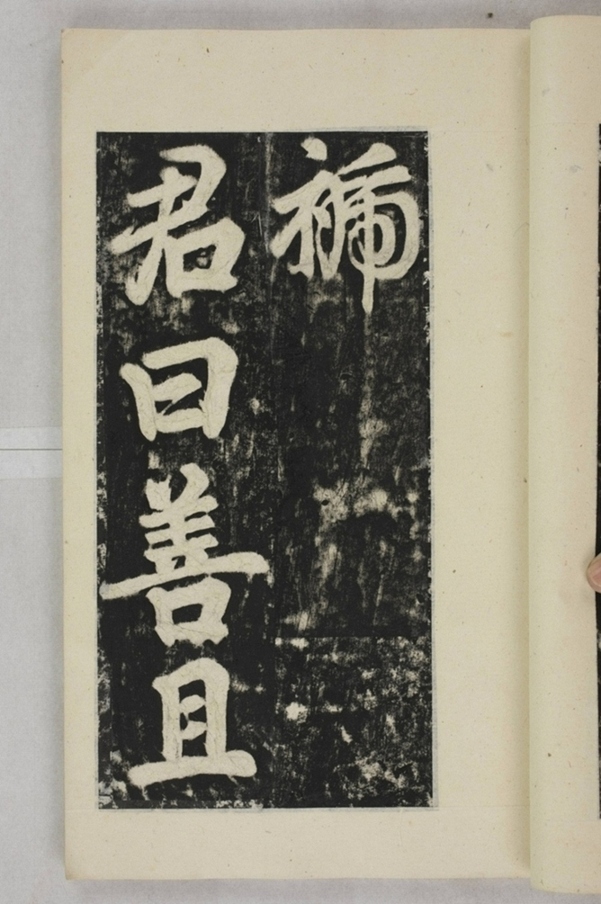 君曰善且